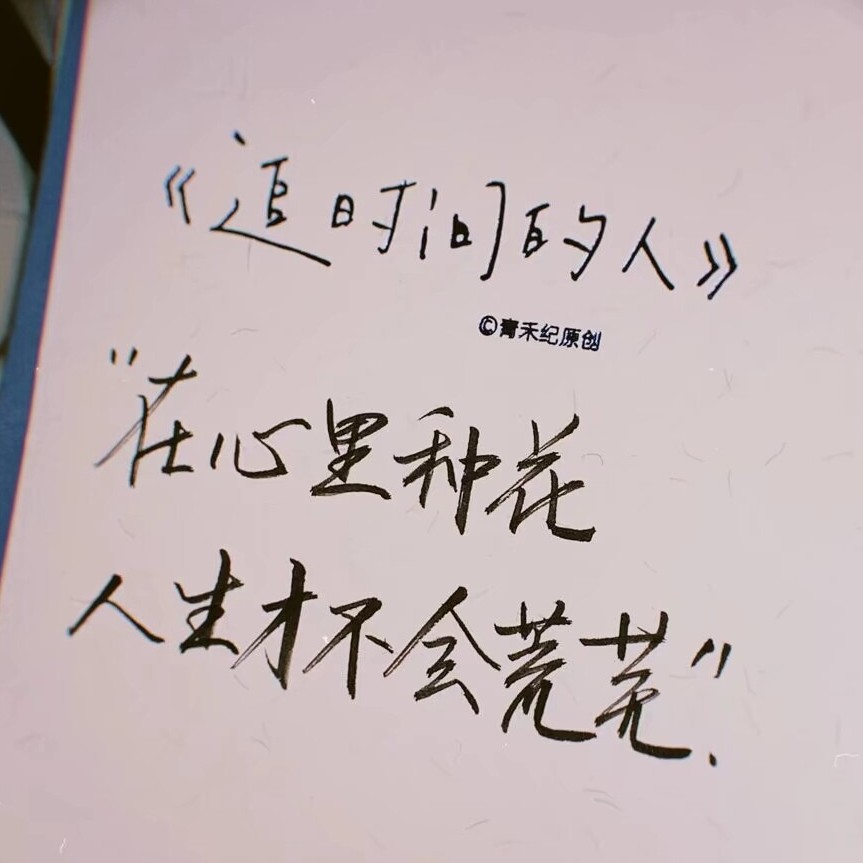 《追时间的人》
©青禾纪原创
"在心里种花
人生才不会荒芜".